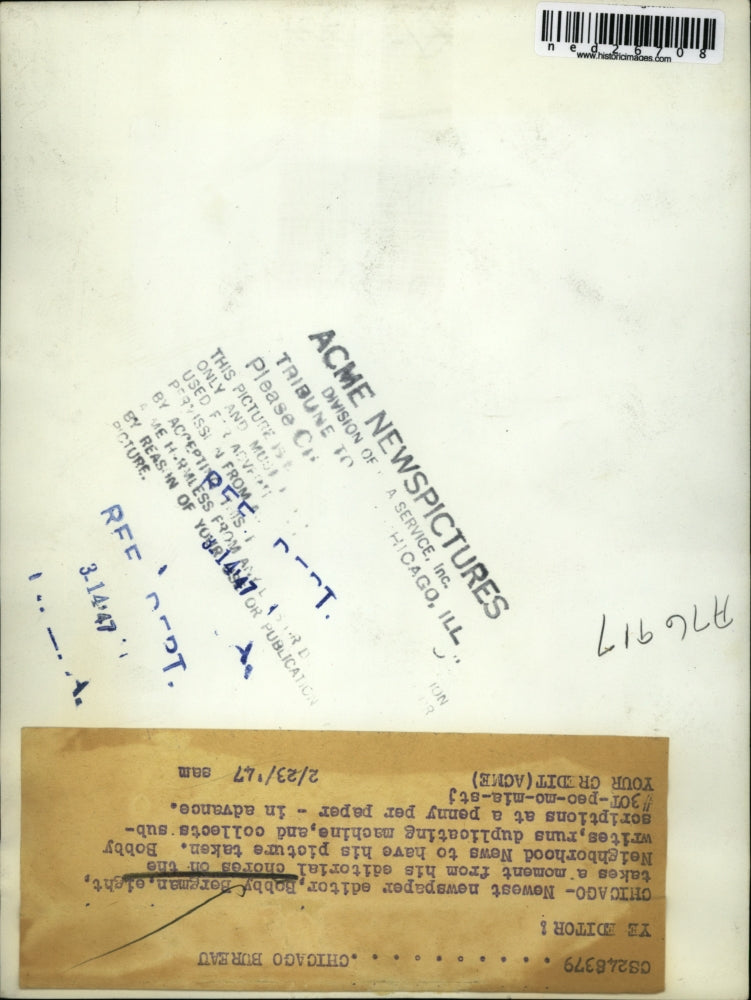 ned26708
www.historicimages.com
ACME NEWSPICTURES
DIVISION OF A SERVICE, Inc.
TRIBUNE TO HICAGO, ILL
Please
THIS PICTURE
ONLY AND
USED
FROM
BY
HARMLESS FROM
BY REASON OF YOUR OR PUBLICATION
PICTURE.
REF DEPT.
3-14-47
REF DEPT.
3-14-47
A76917
CS248379 . . . . . . . . . . . .CHICAGO BUREAU
YE EDITOR:
CHICAGO- Newest newspaper editor, Bobby Bergman, eight,
takes a moment from his editorial chores on the
Neighborhood News to have his picture taken. Bobby
writes, runs duplicating machine, and collects sub-
scriptions at a penny per paper - in advance.
#30T-peo-mo-mia-stj
YOUR CREDIT(ACME) 2/23/'47 sam